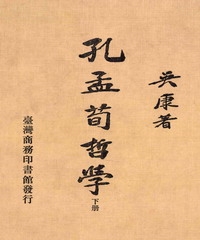 吳康著
孔孟荀哲學
下册
臺灣商務印書館發行